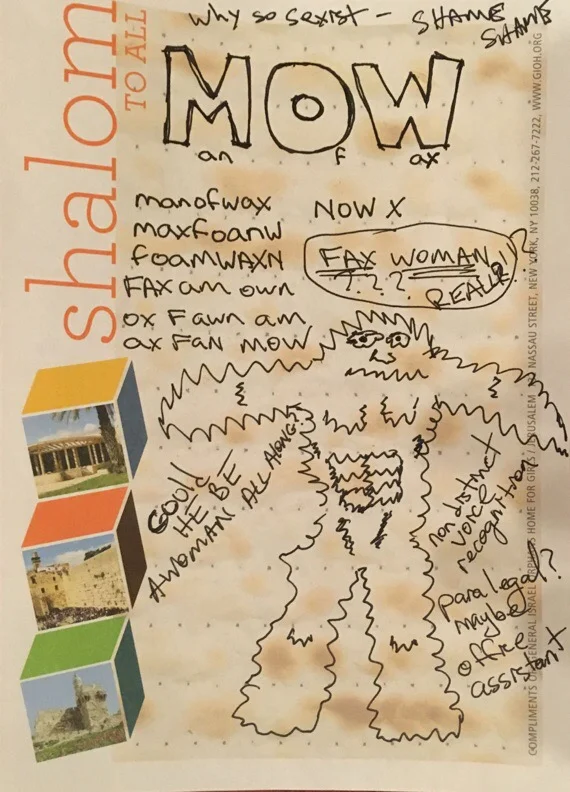 why so sexist — SHAME
SHAME
shalom
TO ALL
MOW
an f ax
manofwax
maxfoanw
foamWAXN
FAX am own
ox Fawn am
ax Fan mow
NOW X
FAX WOMAN
? ? ?
REALLY
GOOD!
HE BE
A WOMAN ALL ALONG!
non distinct
voice
recognition
paralegal?
maybe
office
assistant
COMPLIMENTS OF GENERAL ISRAEL ORPHANS HOME FOR GIRLS / JERUSALEM NASSAU STREET, NEW YORK, NY 10038, 212-267-7222, WWW.GIOH.ORG